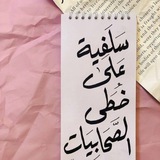 سلفية
على
خطى
الصحابيات